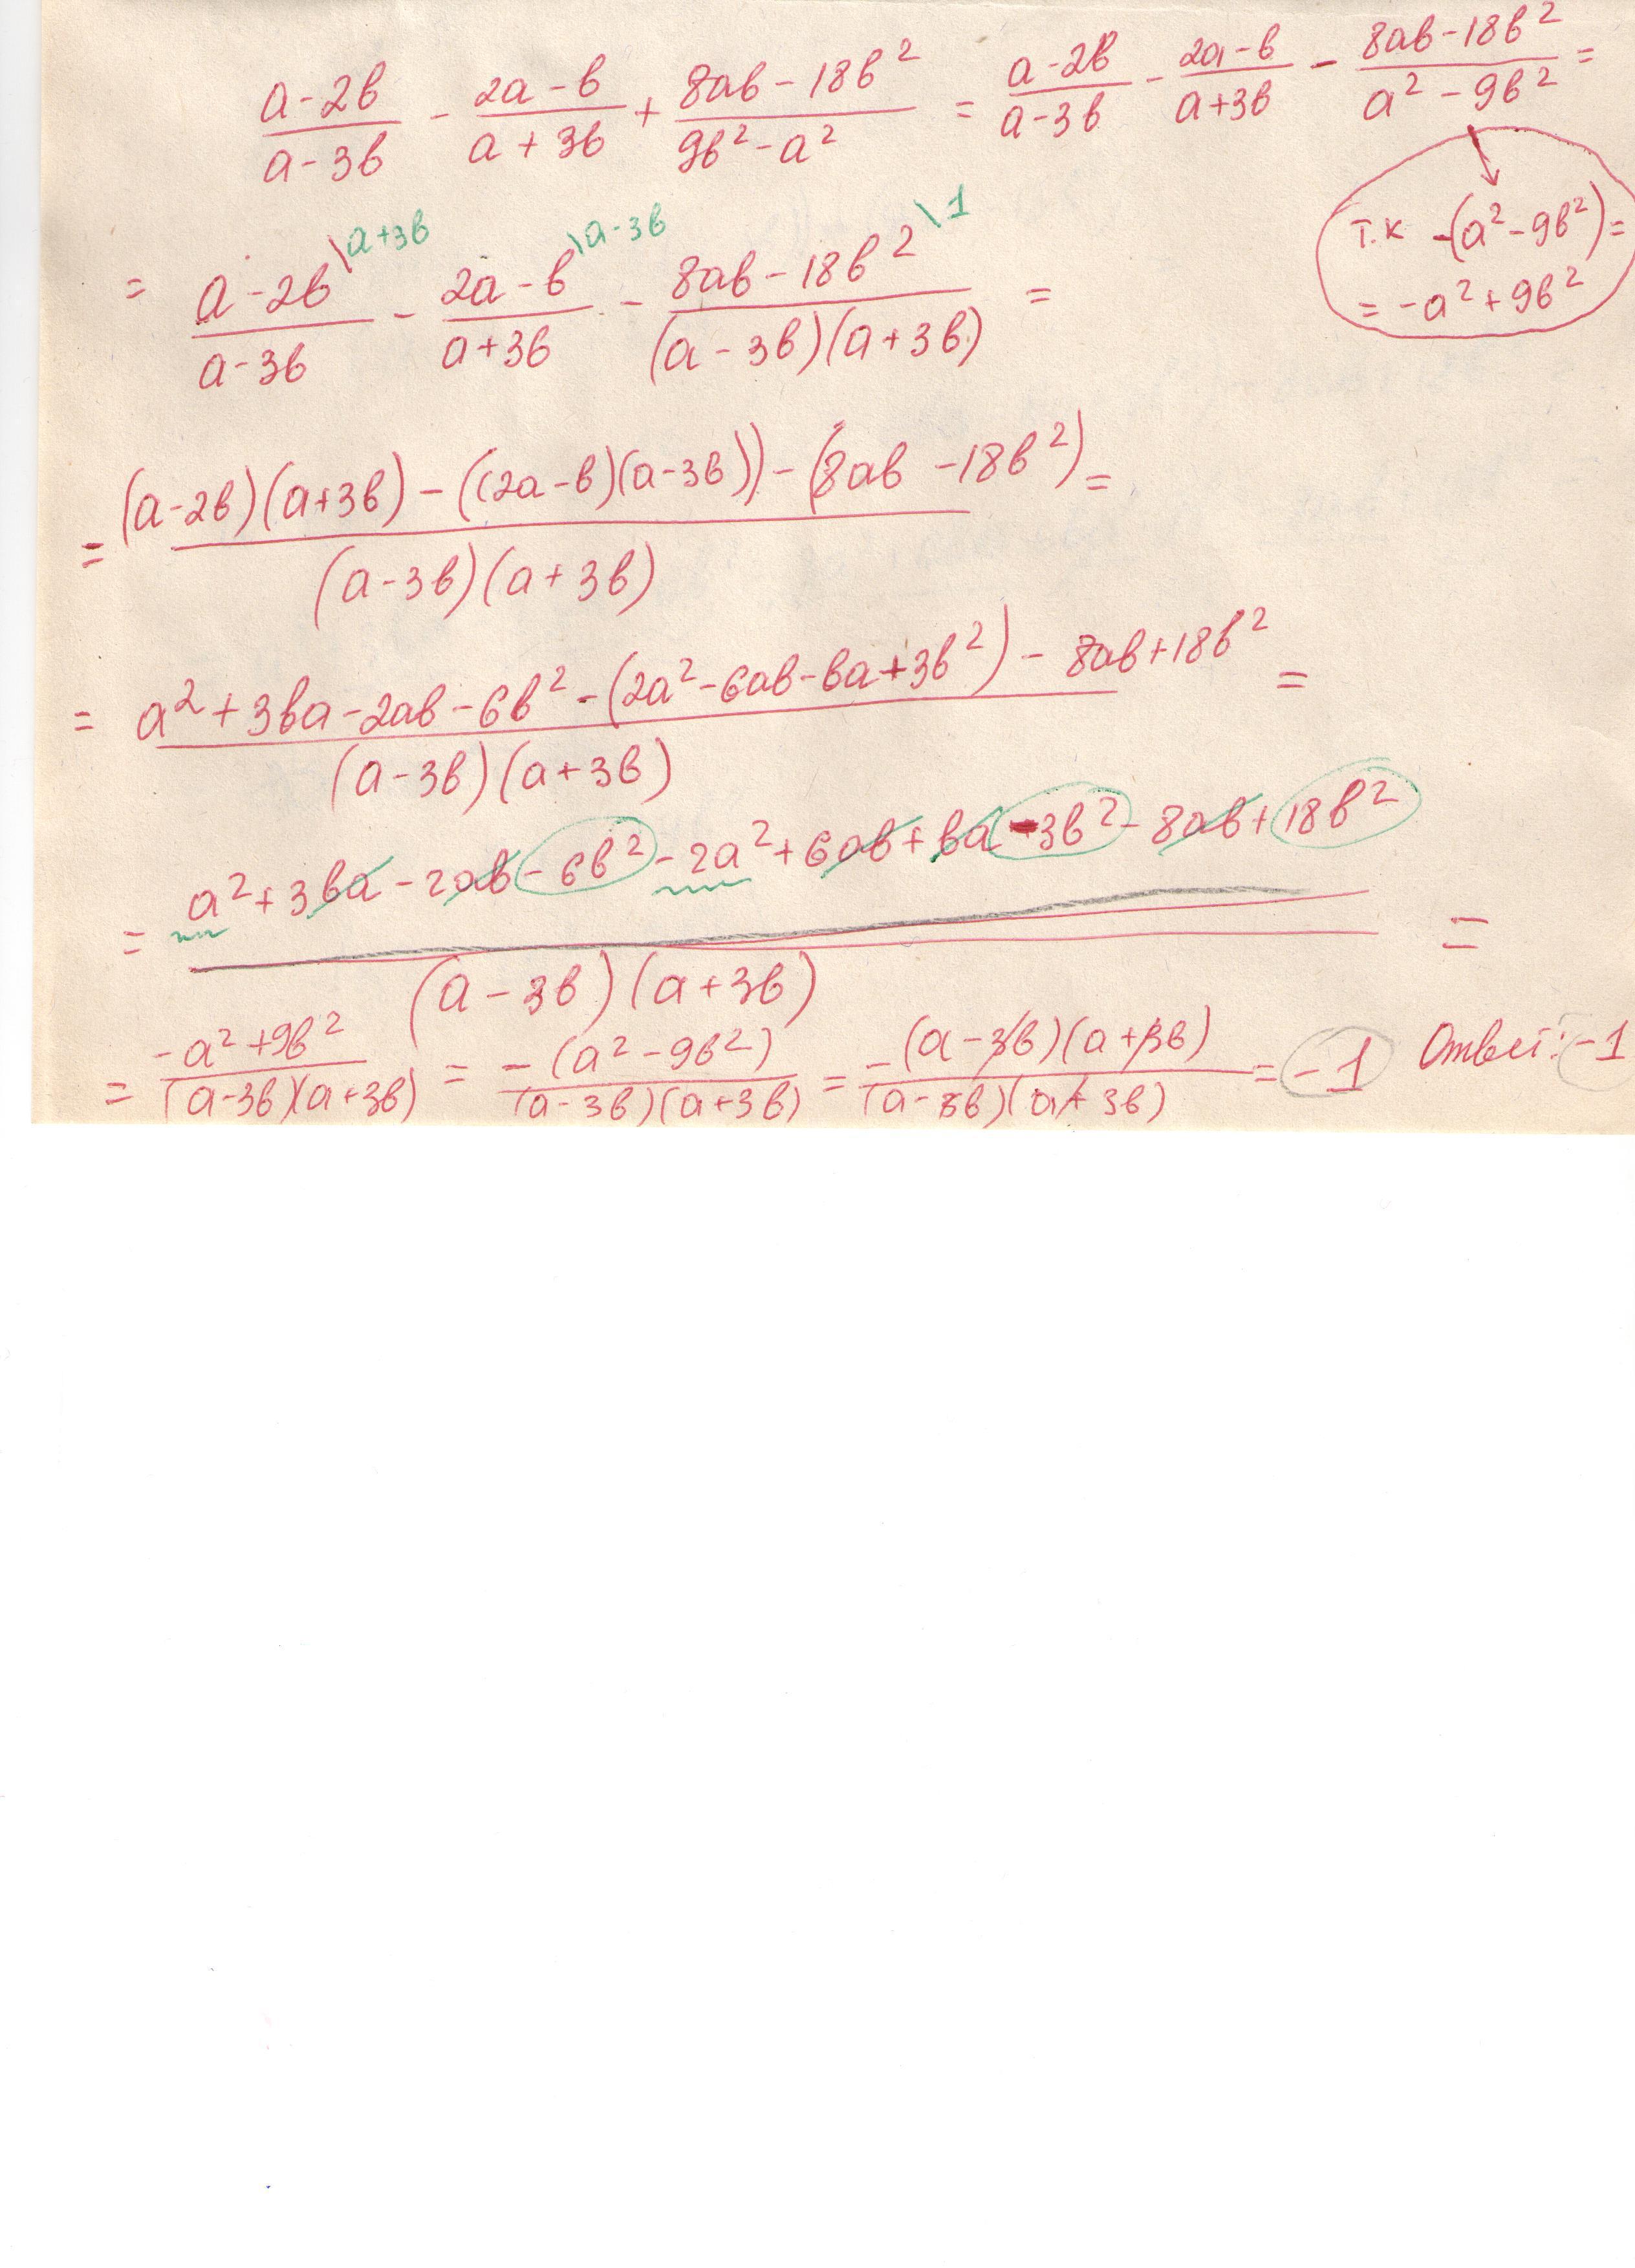 (a-2b)/(a-3b) - (2a-b)/(a+3b) + (8ab-18b²)/(9b²-a²) = (a-2b)/(a-3b) - (2a-b)/(a+3b) - (8ab-18b²)/(a²-9b²) =
т.к -(a²-9b²) =
= -a²+9b²
\a+3b \a-3b \1
= (a-2b)/(a-3b) - (2a-b)/(a+3b) - (8ab-18b²)/((a-3b)(a+3b)) =
= ((a-2b)(a+3b) - ((2a-b)(a-3b)) - (8ab-18b²))/((a-3b)(a+3b)) =
= (a²+3ba-2ab-6b²-(2a²-6ab-ba+3b²)-8ab+18b²)/((a-3b)(a+3b)) =
= (a²+3ba-2ab-6b²-2a²+6ab+ba-3b²-8ab+18b²)/((a-3b)(a+3b)) =
= (-a²+9b²)/((a-3b)(a+3b)) = (-(a²-9b²))/((a-3b)(a+3b)) = (-(a-3b)(a+3b))/((a-3b)(a+3b)) = -1 Ответ: -1